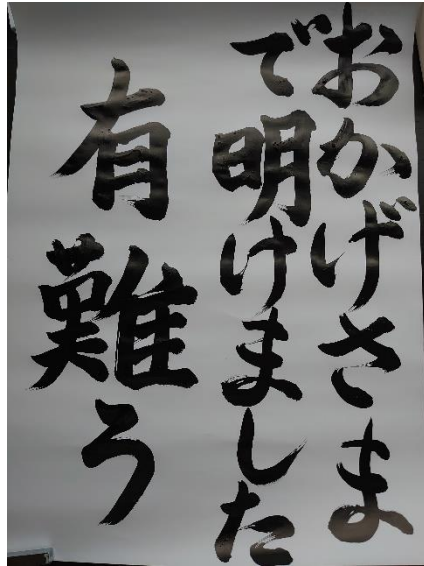 おかげさま
で明けました
有難う